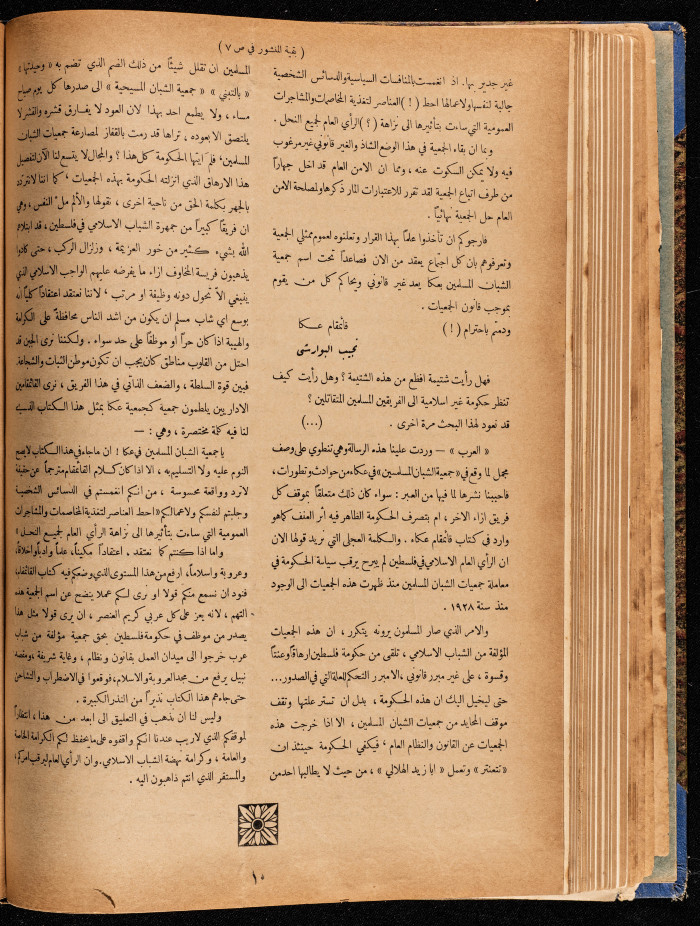 ( بقية المنشور في ص ٧ )
غير جدير بها. اذ انغمست بالمنافسات السياسية والدسائس الشخصية
جالبة لنفسها ولاعمالها احط (!) العناصر لتغذية المخاصمات والمشاجرات
العمومية التي ساءت بتأثيرها الى نزاهة (؟) الرأي العام لجميع النحل .
وبما ان بقاء الجمعية في هذا الوضع الشاذ والغير قانوني غير مرغوب
فيه ولا يمكن السكوت عنه ، وبما ان الامن العام قد اخل جهاراً
من طرف اتباع الجمعية لقد تقرر للاعتبارات المار ذكرها ولمصلحة الامن
العام حل الجمعية نهائياً .
فارجوكم ان تأخذوا علماً بهذا القرار وتعلنوه لعموم ممثلي الجمعية
وتعرفوهم بان كل اجتماع يعقد من الان فصاعداً تحت اسم جمعية
الشبان المسلمين بعكا يعد غير قانوني ويحاكم كل من يقوم
بموجب قانون الجمعيات .
ودمتم باحترام (!) قائمقام عكا
نجيب البوارشي
فهل رأيت شتيمة افظع من هذه الشتيمة ؟ وهل رأيت كيف
تنظر حكومة غير اسلامية الى الفريقين المسلمين المتقاتلين ؟
قد نعود لهذا البحث مرة اخرى . (...)
« العرب » — وردت علينا هذه الرسالة وهي تنطوي على وصف
مجمل لما وقع في « جمعية الشبان المسلمين » في عكا من حوادث وتطورات ،
فاحببنا نشرها لما فيها من العبر : سواء كان ذلك متعلقاً بموقف كل
فريق ازاء الاخر ، ام بتصرف الحكومة الظاهر فيه أثر العنف كما هو
وارد في كتاب قائمقام عكا . والكلمة العجلى التي نريد قولها الان
ان الرأي العام الاسلامي في فلسطين لم يبرح يرقب سياسة الحكومة في
معاملة جمعيات الشبان المسلمين منذ ظهرت هذه الجمعيات الى الوجود
منذ سنة ١٩٢٨ .
والامر الذي صار المسلمون يرونه يتكرر ، ان هذه الجمعيات
المؤلفة من الشباب الاسلامي ، تلقى من حكومة فلسطين ارهاقاً وعنتاً
وقسوة ، على غير مبرر قانوني ، الا مبرر التحكم للعلة التي في الصدور ...
حتى ليخيل اليك ان هذه الحكومة ، بدل ان تستر علتها وتقف
موقف المحايد من جمعيات الشبان المسلمين ، الا اذا خرجت هذه
الجمعيات عن القانون والنظام العام ، فيكفي الحكومة حينئذ ان
« تتعنتر » وتعمل « ابا زيد الهلالي » ، من حيث لا يطالبها احد من
المسلمين ان تقلل شيئاً من ذلك الضم الذي تضم به « وحيدتها »
« بالتبني » « جمعية الشبان المسيحية » الى صدرها كل يوم صباح
مساء ، ولا يطمع احد بهذا لان العود لا يفارق قشره والقشر لا
يلتصق الا بعوده ، تراها قد رمت بالقفاز لمصارعة جمعيات الشبان
المسلمين ، فلم ايتها الحكومة كل هذا ؟ والمجال لا يتسع لنا الآن لتفصيل
هذا الارهاق الذي انزلته الحكومة بهذه الجمعيات ، كما اننا لا نتردد
بالجهر بكلمة الحق من ناحية اخرى ، نقولها والألم ملء النفس ، وهي
ان فريقاً كبيراً من جمهرة الشباب الاسلامي في فلسطين ، قد ابتلاهم
الله بشيء كثير من خور العزيمة ، وزلزال الركب ، حتى كادوا
يذهبون فريسة المخاوف ازاء ما يفرضه عليهم الواجب الاسلامي الذي
ينبغي الا تحول دونه وظيفة او مرتب ، لاننا نعتقد اعتقاداً كلياً أنه
بوسع اي شاب مسلم ان يكون من اشد الناس محافظة على الكرامة
والهيبة اذا كان حراً او موظفاً على حد سواء . ولكننا نرى الجبن قد
احتل من القلوب مناطق كان يجب ان تكون موطن الثبات والشجاعة.
فبين قوة السلطة ، والضعف الذاتي في هذا الفريق ، نرى القائمقامين
الاداريين يلطمون جمعية كجمعية عكا بمثل هذا الكتاب الذي
لنا فيه كلمة مختصرة ، وهي : —
يا جمعية الشبان المسلمين في عكا ! ان ما جاء في هذا الكتاب لا يصح
النوم عليه ولا التسليم به ، الا اذا كان كلام القائمقام مترجماً عن حقيقة
لا ترد وواقعة محسوسة ، من انكم انغمستم في الدسائس الشخصية
وجلبتم لنفسكم ولاعمالكم « احط العناصر لتغذية المخاصمات والمشاجرات
العمومية التي ساءت بتأثيرها الى نزاهة الرأي العام لجميع النحل »
واما اذا كنتم كما نعتقد . اعتقاداً مكيناً ، علماً وادباً واخلاقاً ،
وعروبة واسلاماً ، ارفع من هذا المستوى الذي وضعكم فيه كتاب القائمقام،
فنود ان نسمع منكم قولا او نرى لكم عملا ينضح عن اسم الجمعية هذه
التهم ، لانه يعز على كل عربي كريم العنصر ، ان يرى قولا مثل هذا
يصدر من موظف في حكومة فلسطين بحق جمعية مؤلفة من شباب
عرب خرجوا الى ميدان العمل بقانون ونظام ، وغاية شريفة ، ومقصد
نبيل يرفع من مجد العروبة والاسلام ، فوقعوا في الاضطراب والتشاحن
حتى جاءهم هذا الكتاب نذيراً من النذر الكبيرة .
وليس لنا ان نذهب في التعليق الى ابعد من هذا ، انتظاراً
لموقفكم الذي لا ريب عندنا انكم واقفوه على ما يحفظ لكم الكرامة الخاصة
والعامة ، وكرامة نهضة الشباب الاسلامي . وان الرأي العام ليرقب امركم،
والمستقر الذي انتم ذاهبون اليه .
١٠